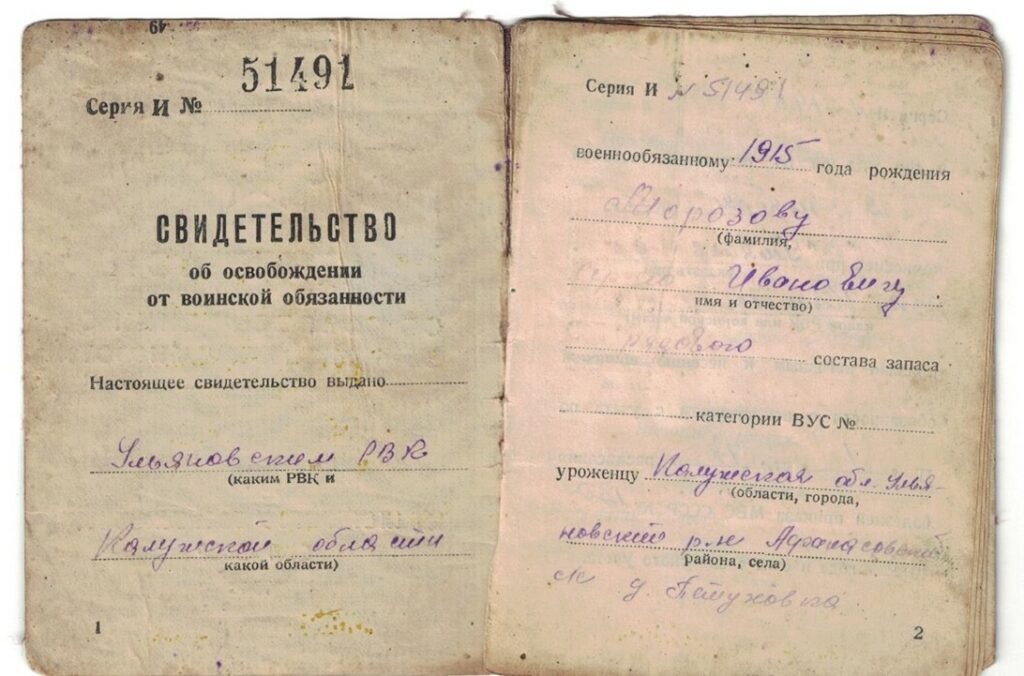 51491
Серия И №
СВИДЕТЕЛЬСТВО
об освобождении
от воинской обязанности
Настоящее свидетельство выдано
Ульяновским РВК
(каким РВК и
Калужской области
какой области)
1
Серия И N 51491
военнообязанному 1915 года рождения
Морозову
(фамилия,
Ивановичу
имя и отчество)
рядового состава запаса
категории ВУС №
уроженцу Калужская обл. Улья-
(области, города,
новский р-н Афанасовский
района, села)
с/с д.
2